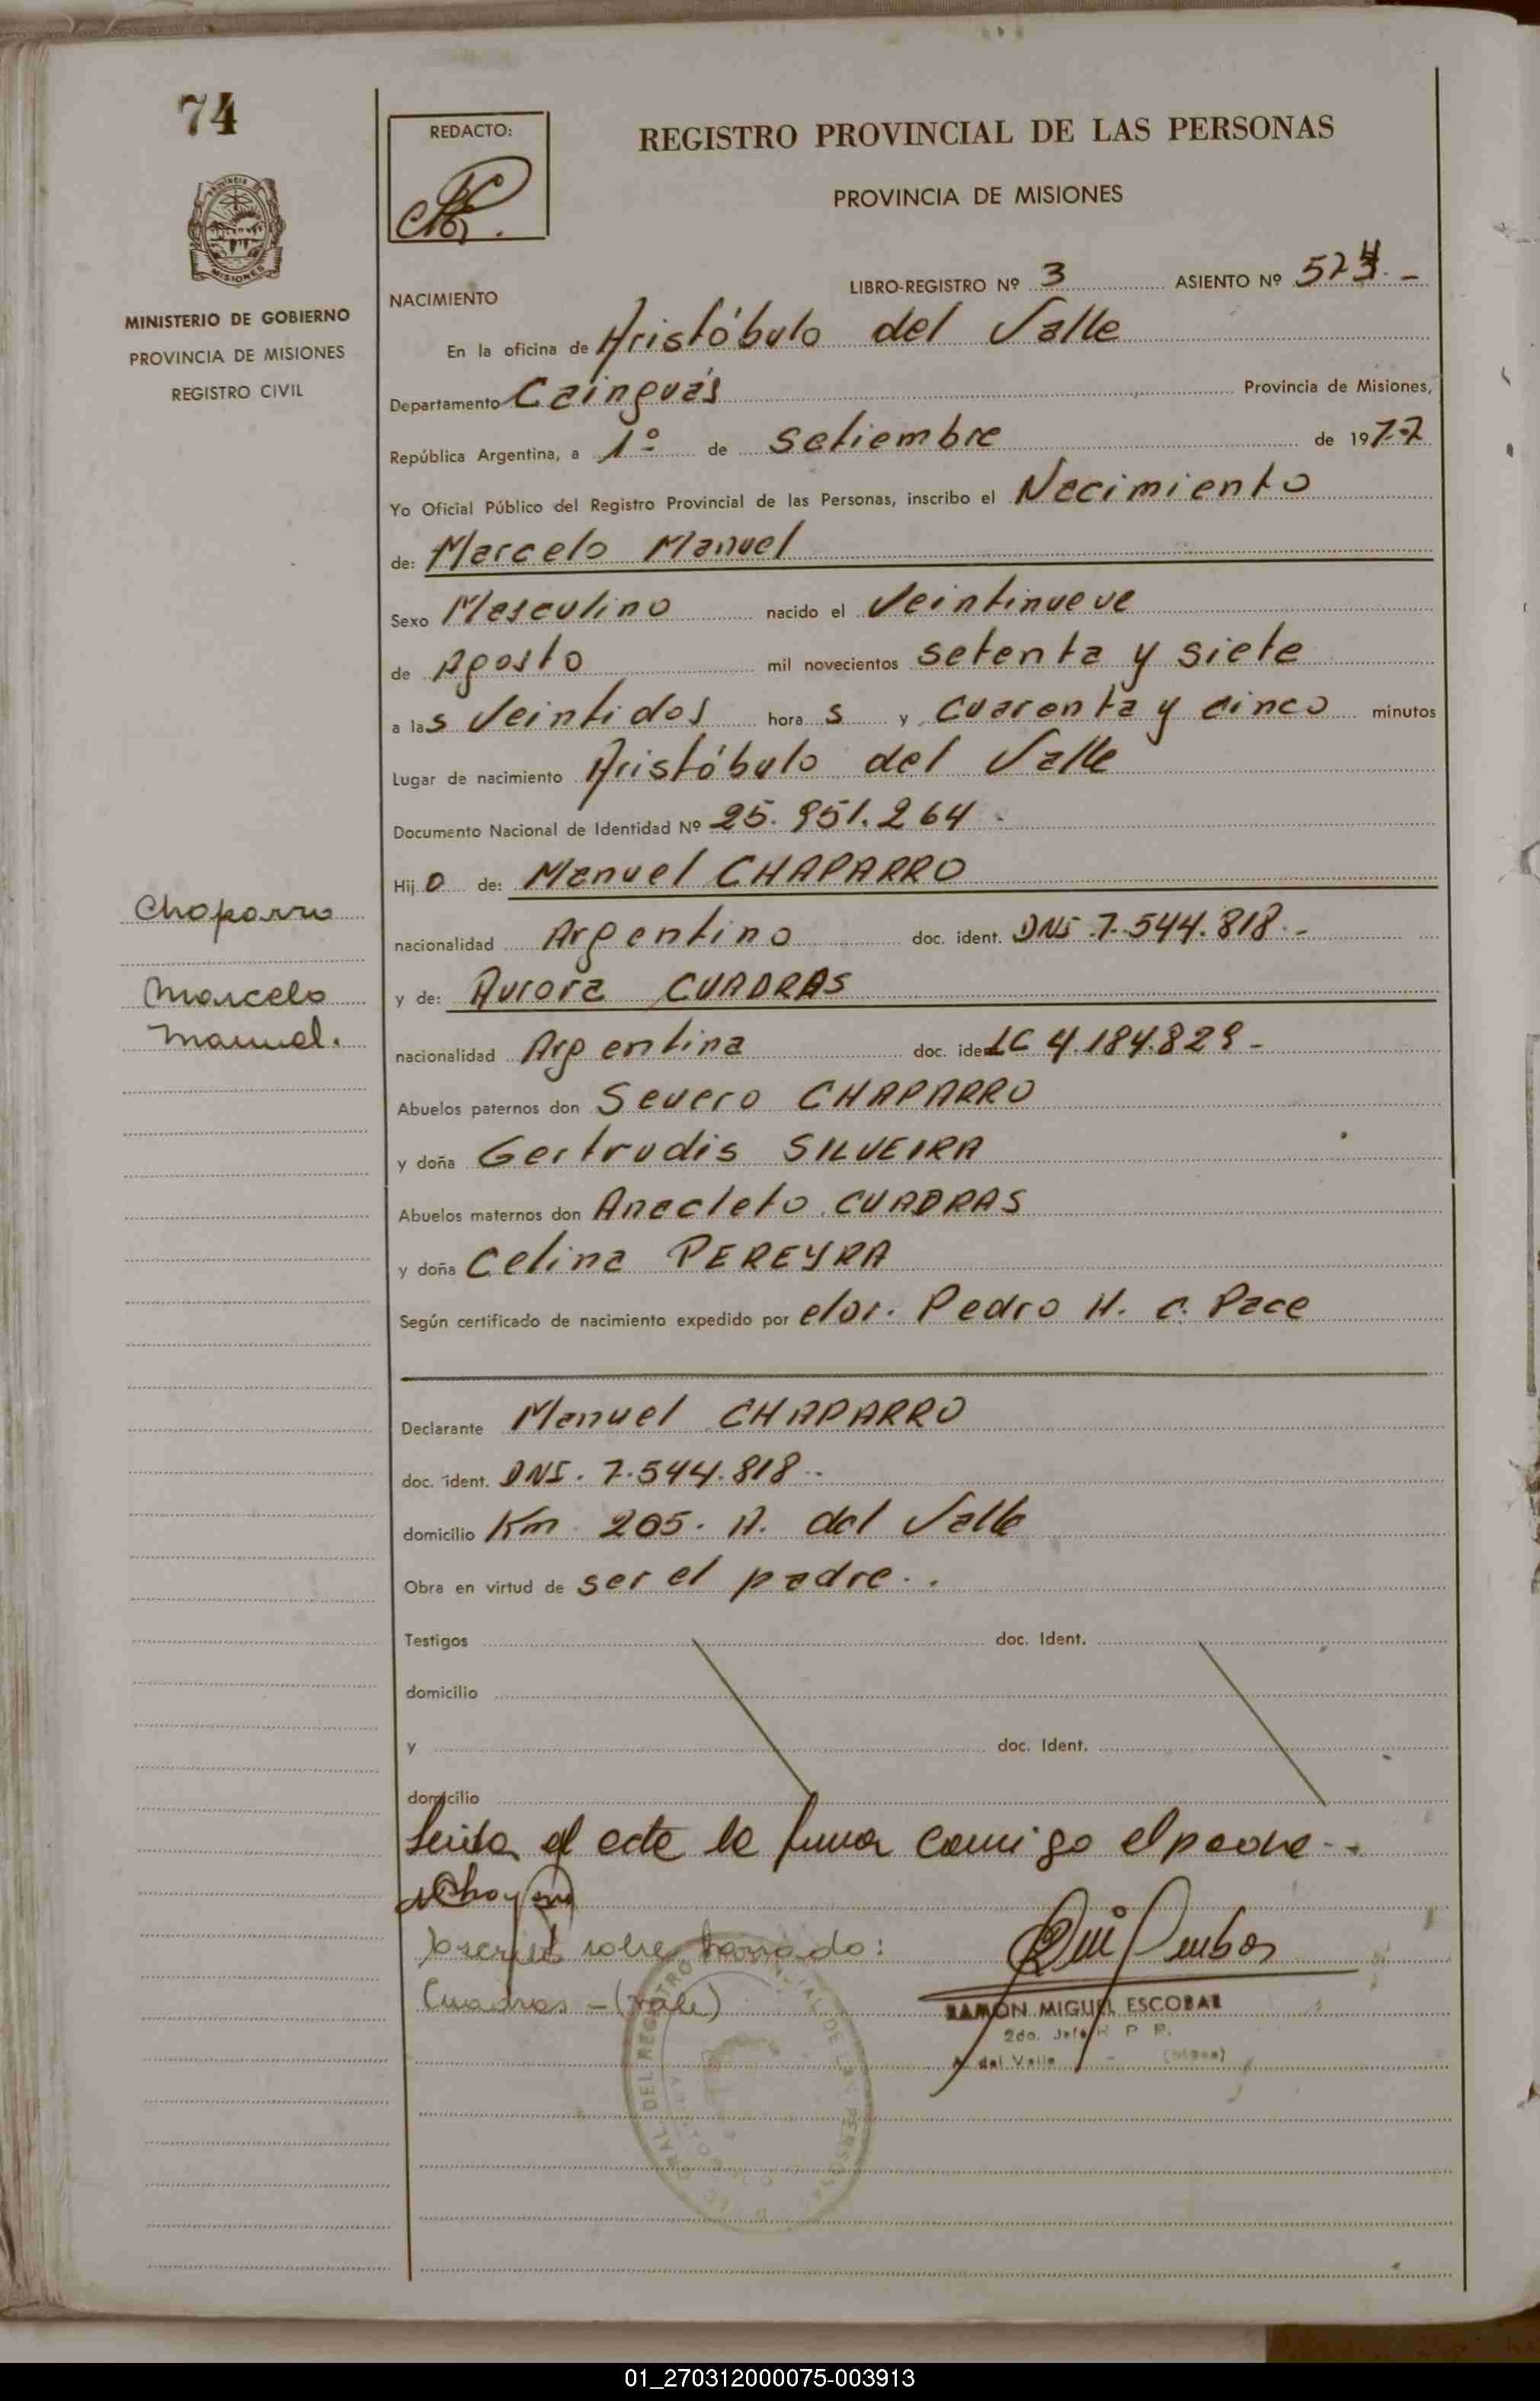 74
REDACTO:
REGISTRO PROVINCIAL DE LAS PERSONAS
PROVINCIA DE MISIONES
MINISTERIO DE GOBIERNO
PROVINCIA DE MISIONES
REGISTRO CIVIL
NACIMIENTO
LIBRO-REGISTRO Nº 3 ASIENTO Nº 524.-
En la oficina de Aristóbulo del Valle
Departamento Cainguás Provincia de Misiones,
República Argentina, a 1º de Setiembre de 1977
Yo Oficial Público del Registro Provincial de las Personas, inscribo el Nacimiento
de: Marcelo Manuel
Sexo Masculino nacido el Veintinueve
de Agosto mil novecientos setenta y siete
a las Veintidos horas y cuarenta y cinco minutos
Lugar de nacimiento Aristóbulo del Valle
Documento Nacional de Identidad Nº 25.951.264
Hijo de: Manuel CHAPARRO
Chaparro
nacionalidad Argentino doc. ident. DNI 7.544.818.-
Marcelo
y de: Aurora CUADRAS
Manuel.
nacionalidad Argentina doc. iden LC 4.184.829-
Abuelos paternos don Severo CHAPARRO
y doña Gertrudis SILVEIRA
Abuelos maternos don Anacleto CUADRAS
y doña Celina PEREYRA
Según certificado de nacimiento expedido por eldr. Pedro H. C. Pace
Declarante Manuel CHAPARRO
doc. ident. DNI. 7.544.818..
domicilio Km 205. A. del Valle
Obra en virtud de ser el padre..
Testigos doc. Ident.
domicilio
y doc. Ident.
domicilio
Leida el acta la firma conmigo el padre.-
sobre borrado:
Cuadras - (vale)
RAMON MIGUEL ESCOBAR
2do. Jefe R P P.
A. del Valle (Mnes)
01_270312000075-003913